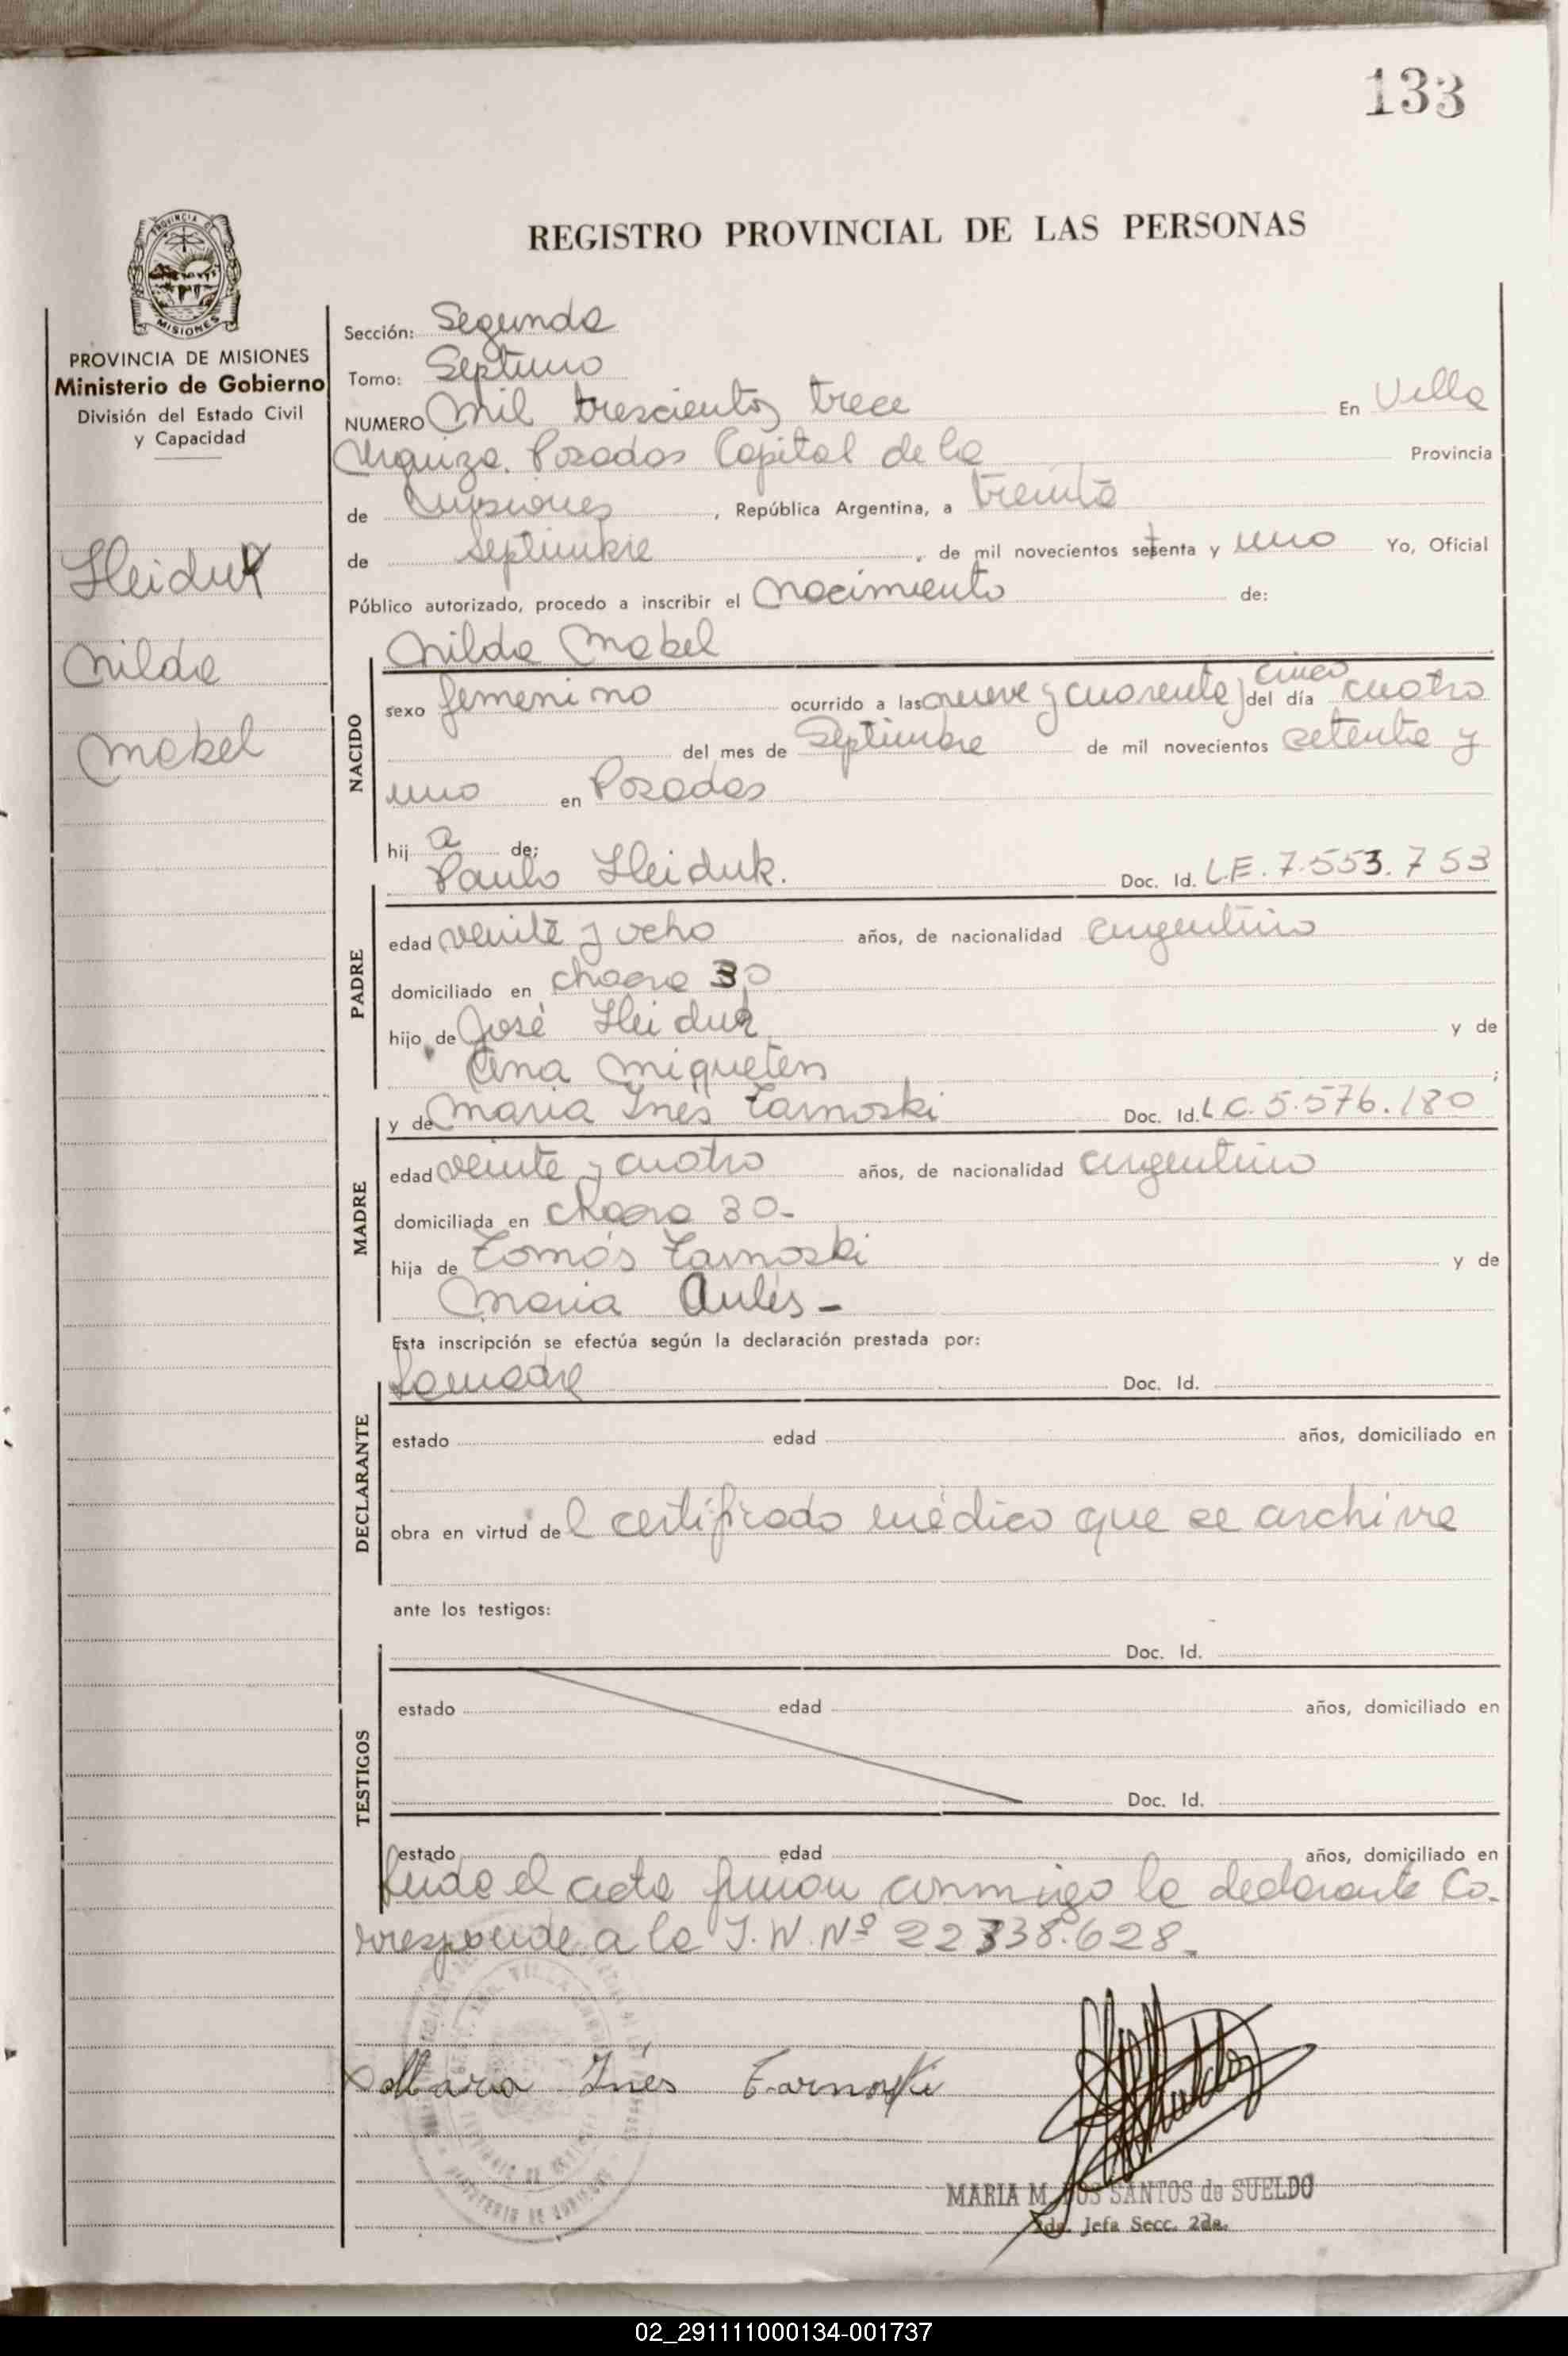 133
REGISTRO PROVINCIAL DE LAS PERSONAS
PROVINCIA
MISIONES
PROVINCIA DE MISIONES
Ministerio de Gobierno
División del Estado Civil
y Capacidad
Heiduk
Nilda
Mabel
Sección: Segunda
Tomo: Septimo
NUMERO Mil trescientos trece En Villa
Urquiza. Posadas Capital de la Provincia
de Misiones, República Argentina, a treinta
de Septiembre, de mil novecientos setenta y uno Yo, Oficial
Público autorizado, procedo a inscribir el Nacimiento de:
Nilda Mabel
NACIDO
cinco
sexo femenino ocurrido a las nueve y cuarenta y del día cuatro
del mes de Septiembre de mil novecientos setenta y
uno en Posadas
hij a de:
Paulo Heiduk. Doc. Id. L.E. 7.553.753
PADRE
edad veinte y ocho años, de nacionalidad argentino
domiciliado en chacra 30
hijo de José Heiduk y de
Ana Miqueten ;
y de Maria Inés Tarnoski Doc. Id. L.C. 5.576.180
MADRE
edad veinte y cuatro años, de nacionalidad argentino
domiciliada en chacra 30-
hija de Tomás Tarnoski y de
Maria Aulés-
Esta inscripción se efectúa según la declaración prestada por:
La madre Doc. Id.
DECLARANTE
estado edad años, domiciliado en
obra en virtud del certificado médico que se archiva
ante los testigos:
Doc. Id.
TESTIGOS
estado edad años, domiciliado en
Doc. Id.
estado edad años, domiciliado en
Leida el acta firman conmigo la declarante Co-
rresponde a la I.N. Nº 22.338.628.
Maria Inés Tarnoski
MARIA M. DOS SANTOS de SUELDO
Jefa Secc. 2da.
02_291111000134-001737